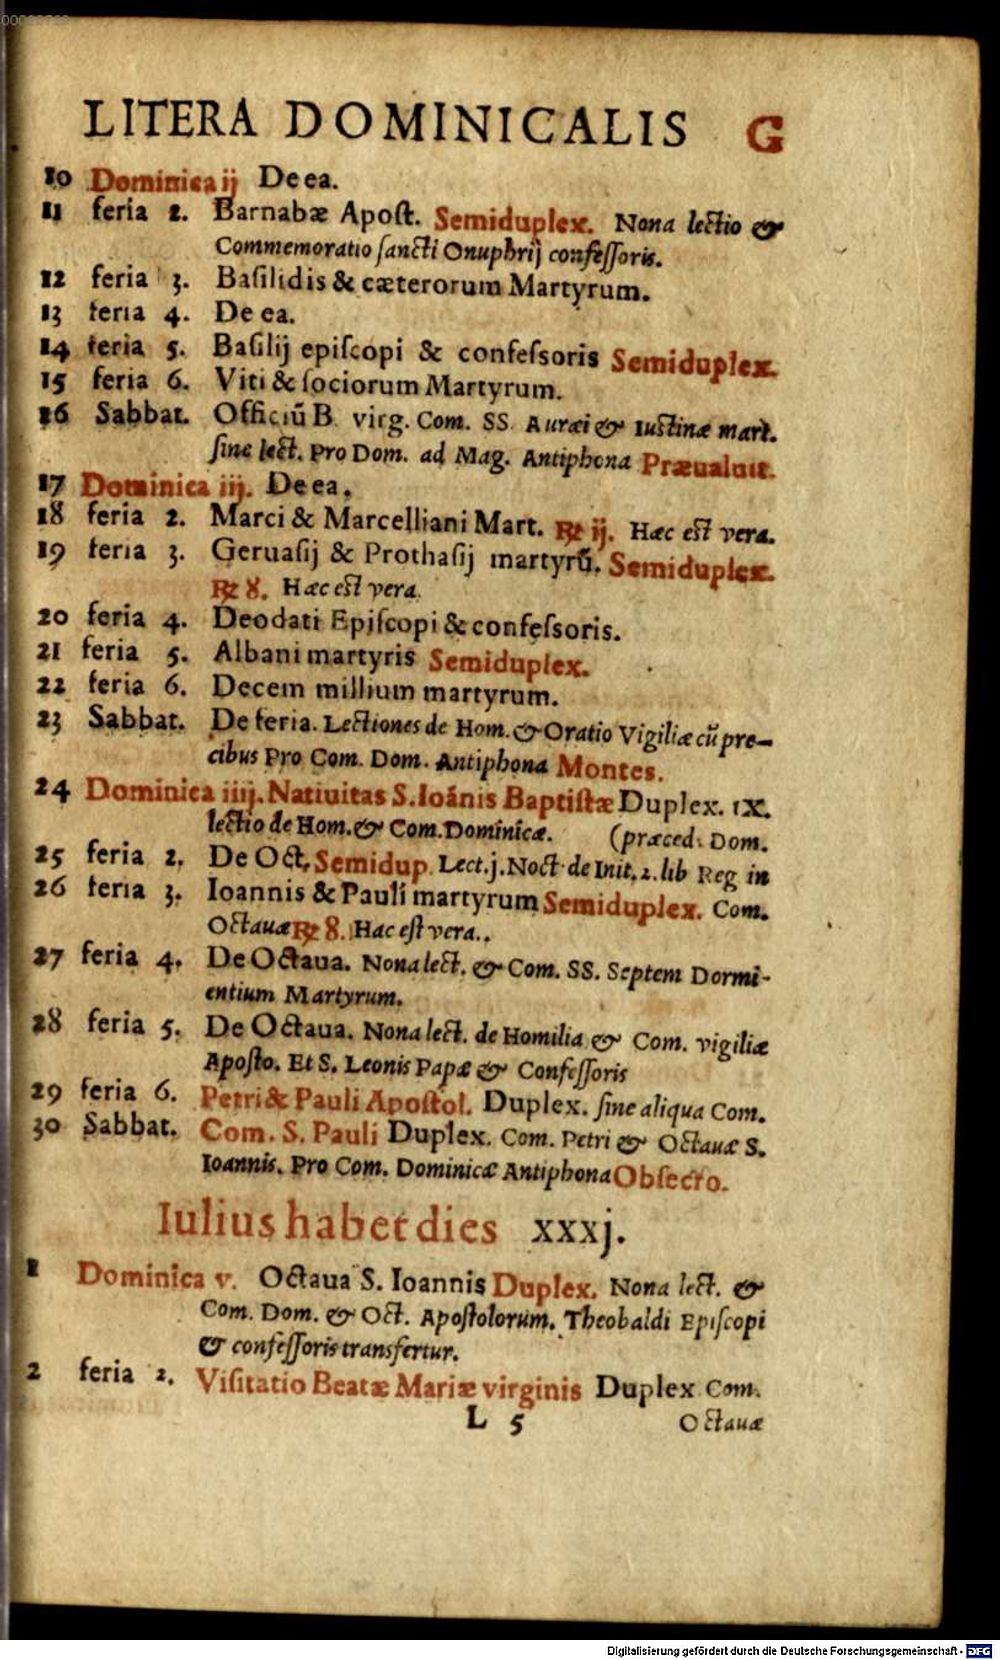 LITERA DOMINICALIS G
10 Dominica ij De ea.
11 feria 2. Barnabæ Apoſt. Semiduplex. Nona lectio &
Commemoratio ſancti Onuphrij confeſſoris.
12 feria 3. Baſilidis & cæterorum Martyrum.
13 feria 4. De ea.
14 feria 5. Baſilij epiſcopi & confeſsoris Semiduplex.
15 feria 6. Viti & ſociorum Martyrum.
16 Sabbat. Officiũ B. virg. Com. SS. Auræi & Iustinæ mart.
ſine lect. Pro Dom. ad Mag. Antiphona Præualuit.
17 Dominica iij. De ea.
18 feria 2. Marci & Marcelliani Mart. ℟ ij. Hæc est vera.
19 feria 3. Geruaſij & Prothaſij martyrũ. Semiduplex.
℟ 8. Hæc est vera.
20 feria 4. Deodati Epiſcopi & confeſsoris.
21 feria 5. Albani martyris Semiduplex.
22 feria 6. Decem millium martyrum.
23 Sabbat. De feria. Lectiones de Hom. & Oratio Vigiliæ cũ pre-
cibus Pro Com. Dom. Antiphona Montes.
24 Dominica iiij. Natiuitas S. Ioãnis Baptiſtæ Duplex. ix.
lectio de Hom. & Com. Dominicæ. (præced. Dom.
25 feria 2. De Oct. Semidup. Lect. j. Noct. de Init. 2. lib Reg in
26 feria 3. Ioannis & Pauli martyrum Semiduplex. Com.
Octauæ ℟ 8. Hæc eſt vera..
27 feria 4. De Octaua. Nona lect. & Com. SS. Septem Dormi-
entium Martyrum.
28 feria 5. De Octaua. Nona lect. de Homilia & Com. vigiliæ
Apoſto. Et S. Leonis Papæ & Confeſſoris
29 feria 6. Petri & Pauli Apoſtol. Duplex. ſine aliqua Com.
30 Sabbat. Com. S. Pauli Duplex. Com. Petri & Octauæ S.
Ioannis. Pro Com. Dominicæ Antiphona Obſecro.
Iulius habet dies xxxj.
1 Dominica v. Octaua S. Ioannis Duplex. Nona lect. &
Com. Dom. & Oct. Apoſtolorum. Theobaldi Epiſcopi
& confeſſoris transfertur.
2 feria 2. Viſitatio Beatæ Mariæ virginis Duplex Com.
L 5 Octauæ
Digitalisierung gefördert durch die Deutsche Forschungsgemeinschaft - DFG